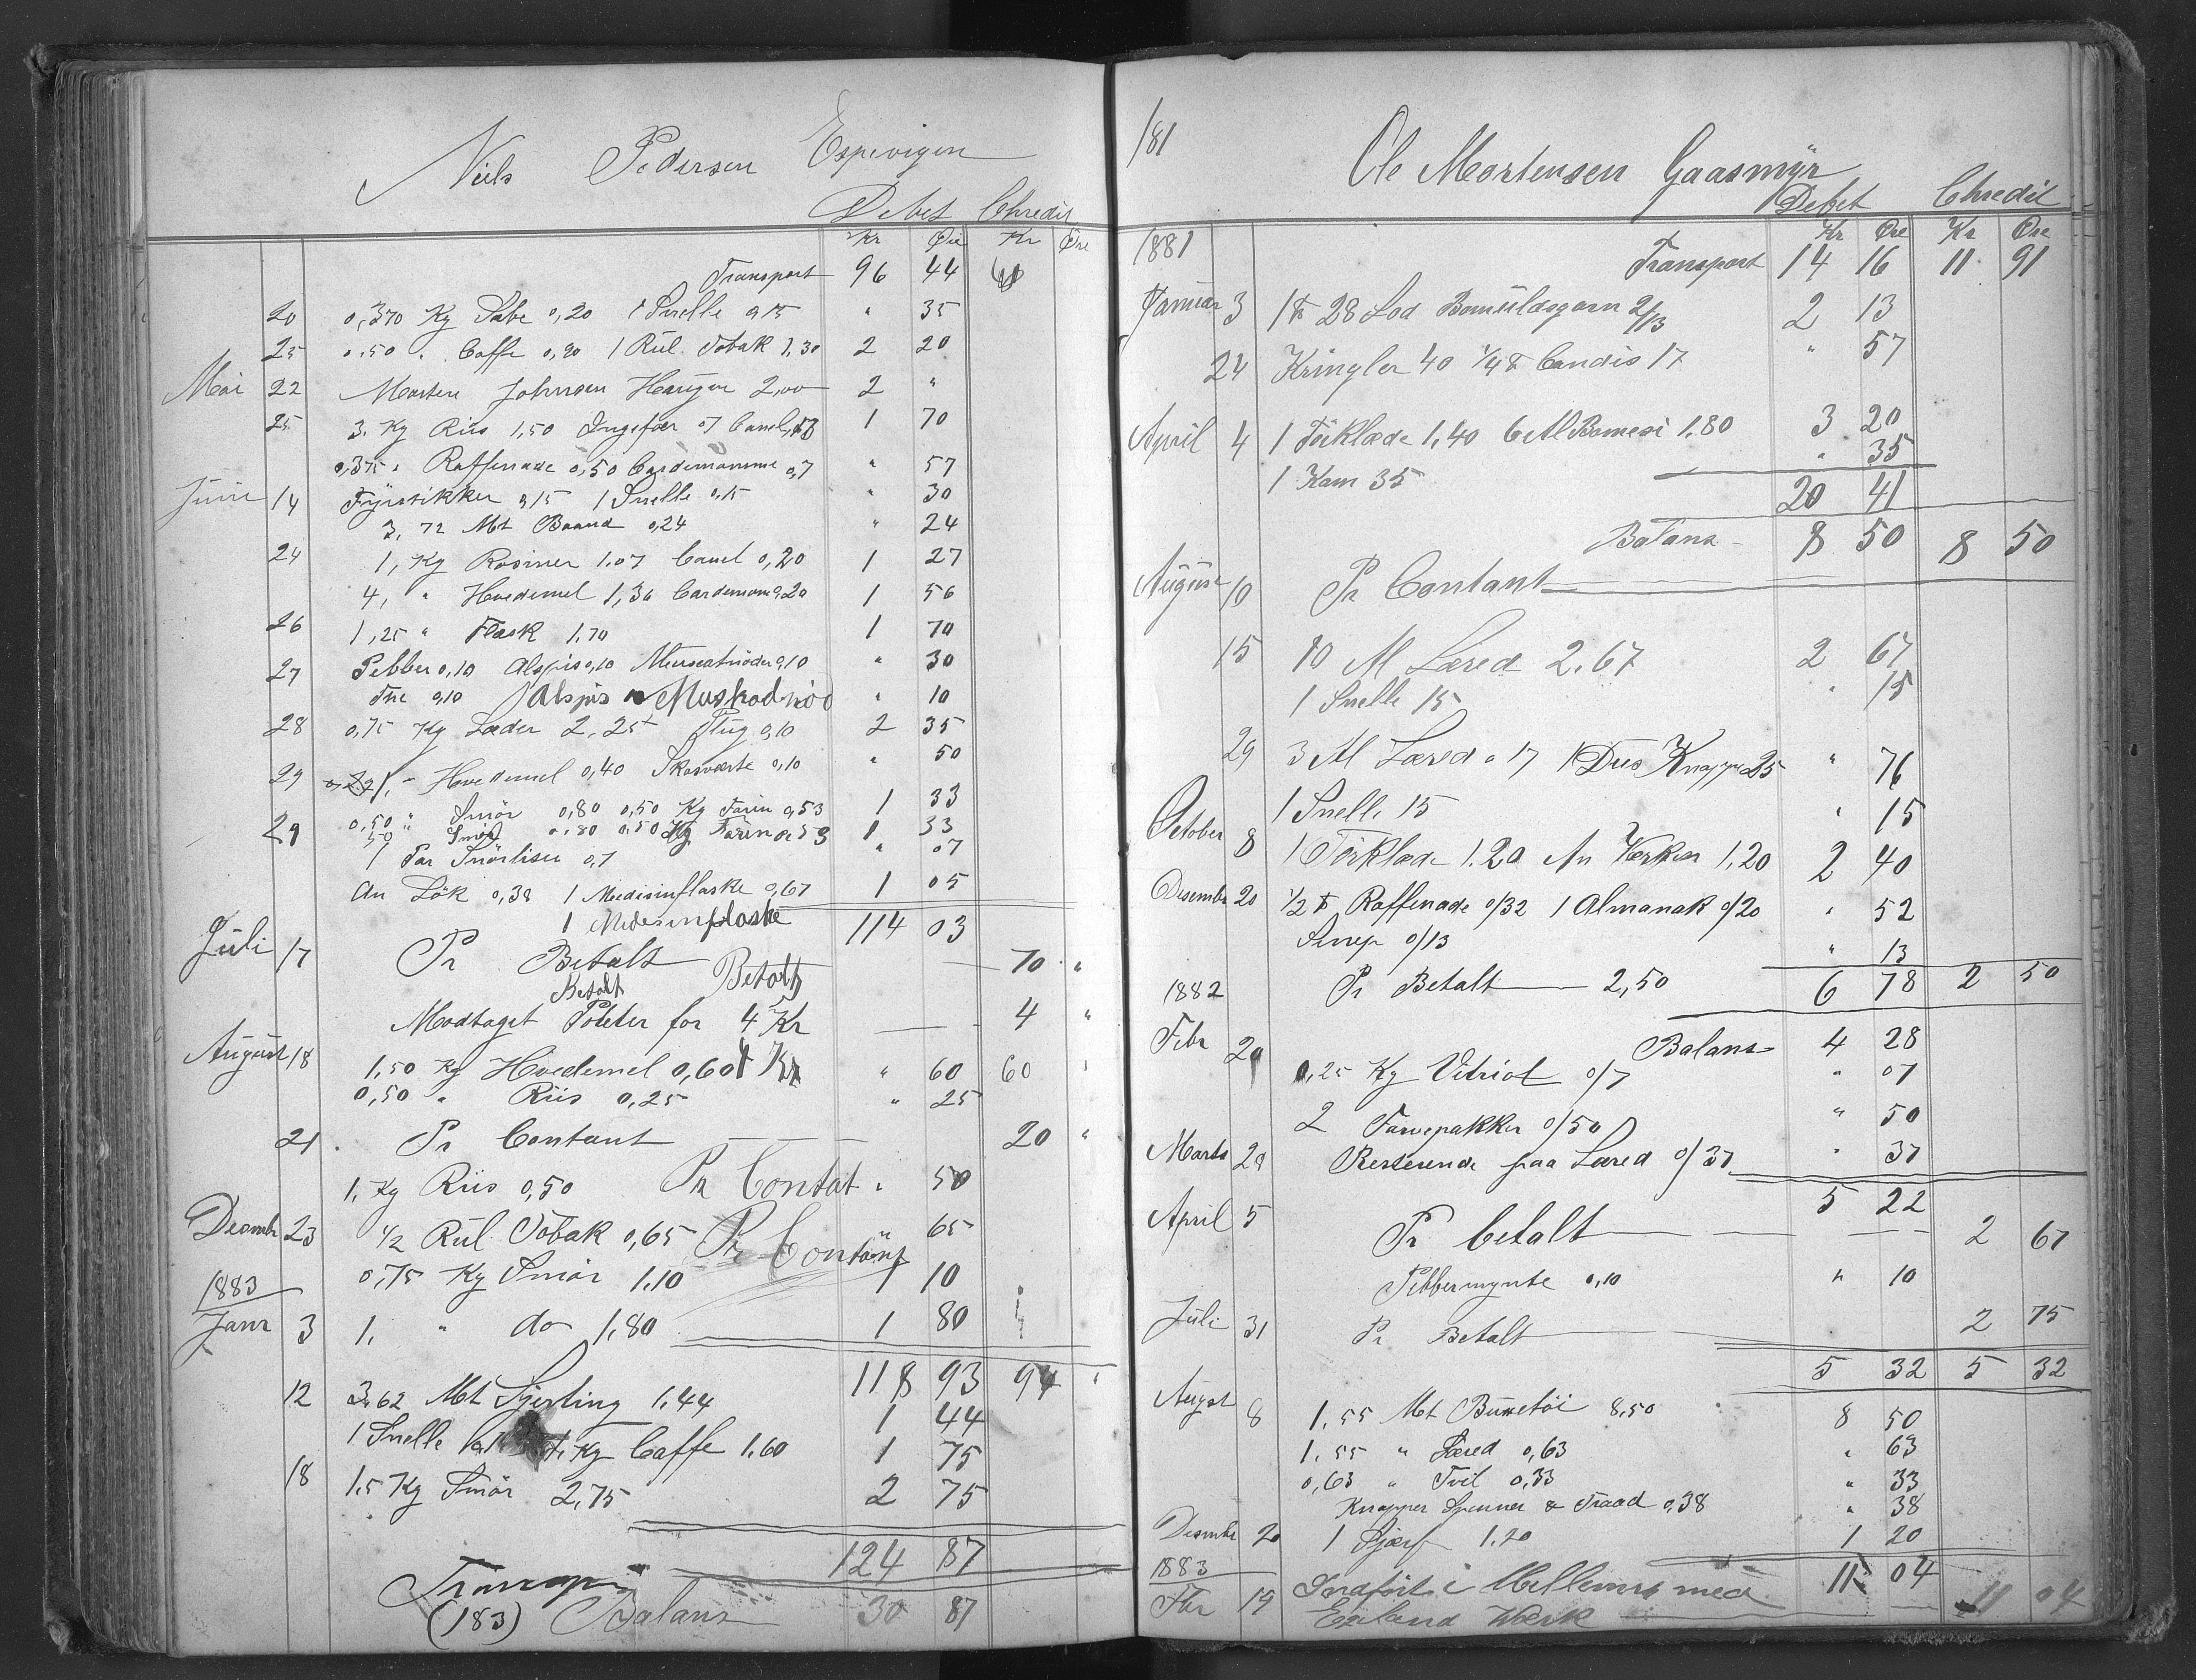 Niels Pedersen Espevigen
Debet Chredit
Kr Øre Kr Øre
Transport 96 44
20 0,370 Kg Sæbe 0,20 1 Snelle 0,15 " 35
25 0,50 " Caffe 0,90 1 Rul Tobak 1,30 2 20
Mai 22 Morten Johnsen 2,00 2 "
25 3. Kg Riis 1,50 Ingefær 07 Canel 13 1 70
0,375 " Raffenade 0,50 Cardemomme 0,7 " 57
Juni 14 Fyrstikker 0,15 1 Snelle 0,15 " 30
3,72 Mt Baand 0,24 " 24
24 1, Kg Rosiner 1.07 Canel 0,20 1 27
4, " Hvedemel 1,36 Cardemom 0,20 1 56
26 1,25 " Flæsk 1.70 1 70
27 Pebber 0,10 Alspis 0,10 Muscatnöder 0,10 " 30
The 0,10 Alspis Muskadnöd " 10
28 0,75 Kg Læder 2,25 Plüg 0,10 2 35
29 1, " Hvedemel 0,40 Skosværte 0,10 " 50
0,50 " Smör 0,80 0,50 Kg Farin 0,53 1 33
29 50 " Smör 0,80 0,50 Kg Farin 0,53 1 33
1 Par Snörliser 0,7 " 07
An Lök 0,38 1 Medisinflaske 0,67 1 05
1 Medesinflaske 114 03
Juli 17 Pr Betalt Betalt 70 "
Betalt
Modtaget Poteter for 4 Kr 4 "
August 18 1,50 Kg Hvedemel 0,60 4 Kr " 60 60
0,50 " Riis 0,25 " 25
21 Pr Contant 20 "
1, Kg Riis 0,50 Pr Contat " 50
Decembr 23 1/2 Rul Tobak 0,65 Pr Contant " 65
1883 0,75 Kg Smör 1.10 1 10
Janr 3 1. " do 1,80 1 80
118 93 94 "
12 3,62 Mt Sjerting 1.44 1 44
1 Snelle 1. Kg Caffe 1.60 1 75
18 1.5 Kg Smör 2,75 2 75
124 87
Transp
(183) Balans 30 87
181
Ole Mortensen Gaasmyr
Debet Chredit
Kr Øre Kr Øre
1881 Transport 14 16 11 91
Januar 3 1 ℔ 28 Lod Bomuldsgarn 2/13 2 13
24 Kringler 40 1/4 ℔ Candis 17 " 57
April 4 1 Törklæde 1,40 6 Al Bomesi 1.80 3 20
1 Kam 35 " 35
20 41
Balans 8 50 8 50
August 10 Pr Contant
15 10 Al Læred 2.67 2 67
1 Snelle 15 " 15
29 3 Al Læred a 17 1 Dus Knapper 25 " 76
1 Snelle 15 " 15
October 8 1 Törklæde 1.20 An Verken 1.20 2 40
Desembr 20 1/2 ℔ Raffenade 0/32 1 Almanak 0/20 " 52
Sinep 0/13 " 13
1882 Pr Betalt 2,50 6 78 2 50
Febr 20 Balans 4 28
0,25 Kg Vitriol 0/7 " 07
2 Farvepakker 0/50 " 50
Marts 29 Resterende paa Læred 0/37 " 37
5 22
April 5 Pr betalt 2 67
Pebbermynte 0,10 " 10
Juli 31 Pr Betalt 2 75
5 32 5 32
August 8 1.55 Mt Buxetöi 8.50 8 50
1.55 " Læred 0,63 " 63
0,63 " Tvil 0,33 " 33
Knapper Spenner & Traad 0,38 " 38
Desembr 20 1 Sjærf 1.20 1 20
1883 11 04
Fbr 19 Indfört i Mellemrs med 11 04
Egeland Værk